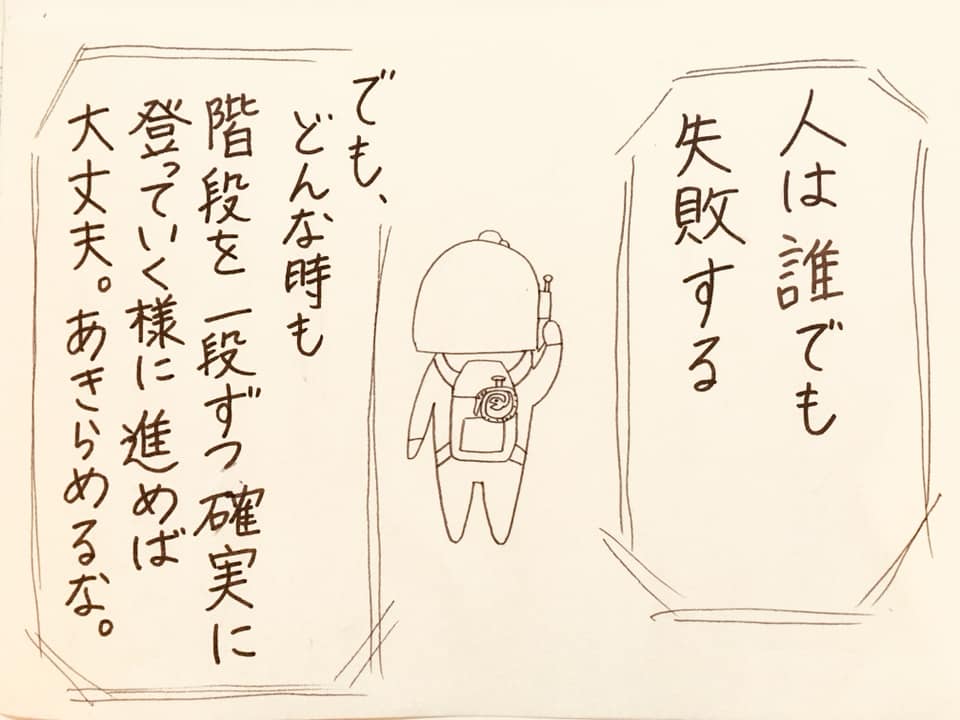 人は誰でも
失敗する
でも、
どんな時も
階段を一段ずつ確実に
登っていく様に進めば
大丈夫。あきらめるな。